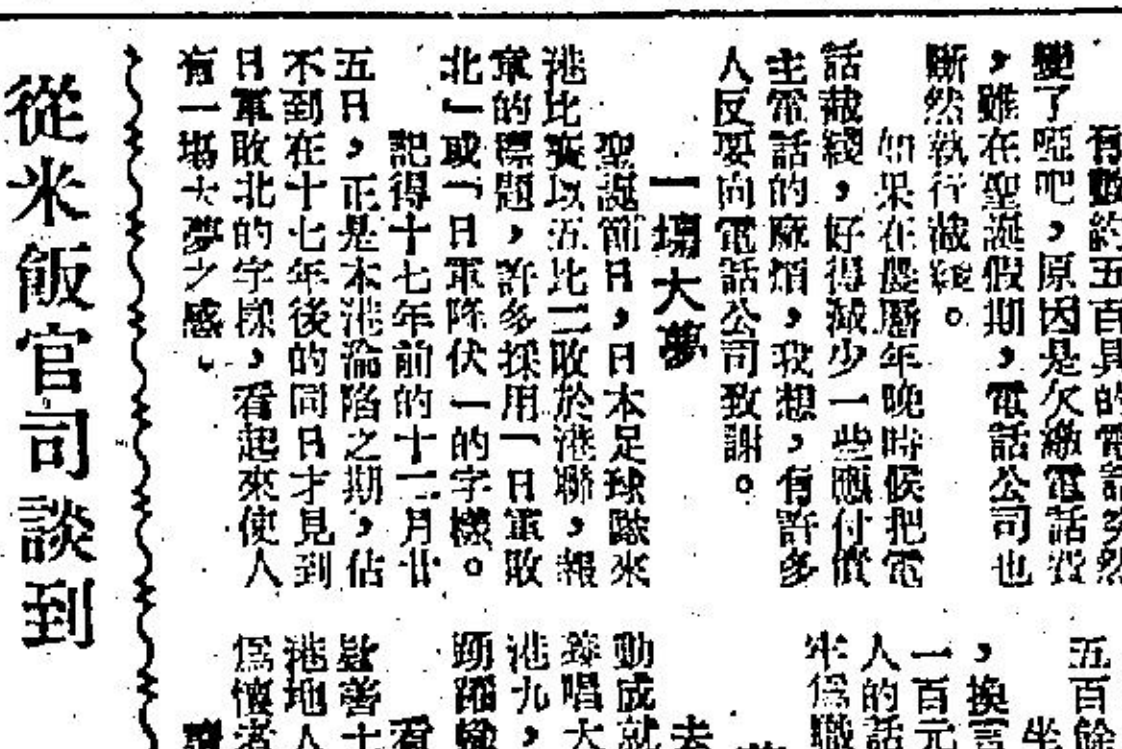 有數約五百具的電話突然
變了啞吧，原因是欠繳電話費
，雖在聖誕假期，電話公司也
斷然執行截綫。
如果在農曆年晚時候把電
話截綫，好得減少一些應付債
主電話的麻煩，我想，有許多
人反要向電話公司致謝。
一場大夢
聖誕節日，日本足球隊來
港比賽以五比二敗於港聯，報
章的標題，許多採用「日軍敗
北」或「日軍降伏」的字樣。
記得十七年前的十二月廿
五日，正是本港淪陷之期，估
不到在十七年後的同日才見到
日軍敗北的字樣，看起來使人
有一場大夢之感。
五百餘
坐
，換言
一百元
人的話
牢爲職
去
動成就
唱大
港九，
踴躍
看
善士
港地人
爲懷者
從米飯官司談到